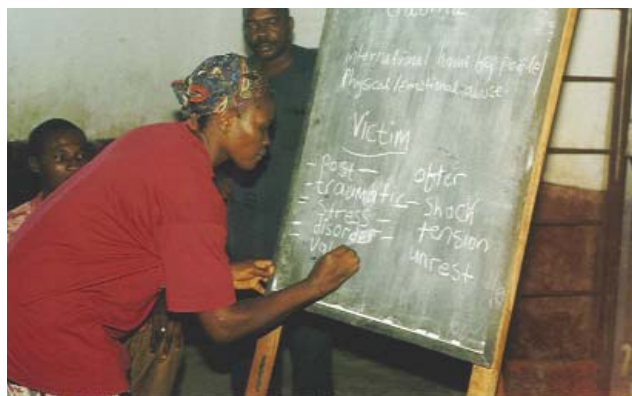 trauma
international harm to people/
Physical/emotional abuse
Victim
- Post - after
- traumatic - shock
- Stress - tension
- disorder - unrest